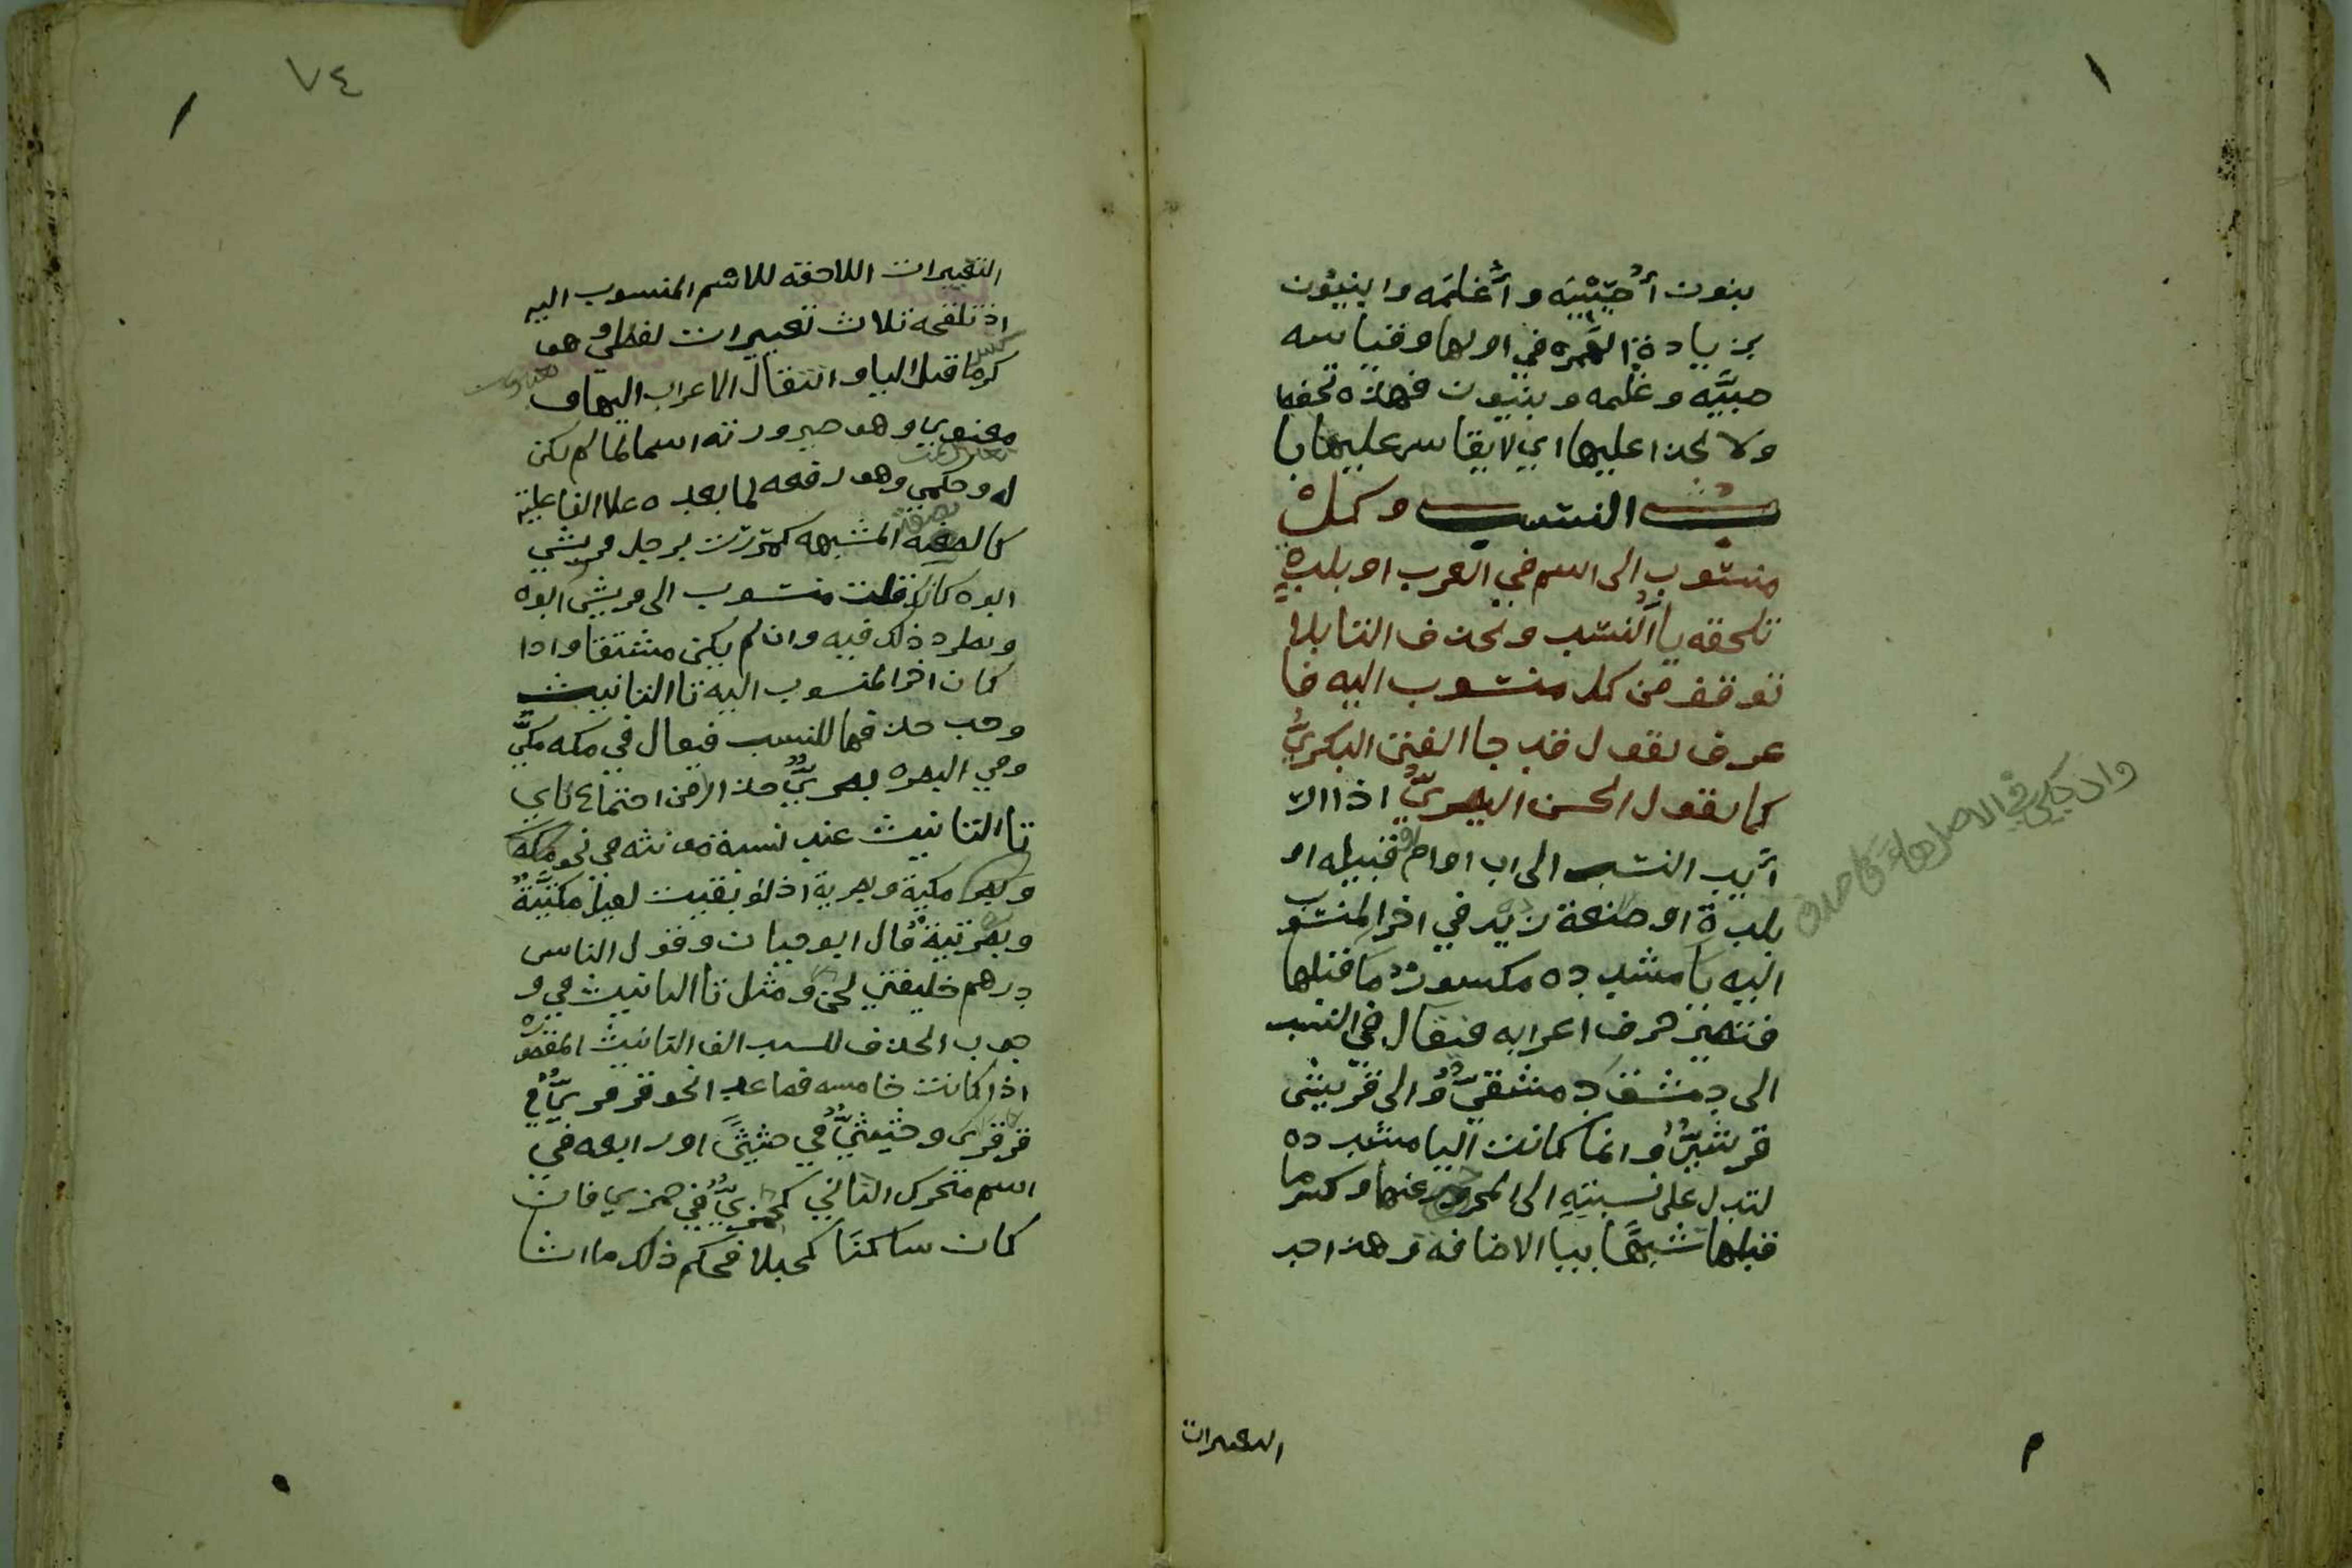 بنون أُصَيْبِيَه وأُغَيلمَه وابنيون
بزيادة الهمزه في اولها وقياسه
صبيَّه وغليمه وبنيون فهذه تحفظ
ولا يحذا عليها اي لا يقاس عليها با
ب النسب وكل
منسوب الى اسم في العرب او بلده
تلحقه يا النسب وتحذف التا بلا
توقف من كل منسوب اليه فا
عرف تقول قد جا الفتى البكريُّ
كما تقول الحسن البصريُّ اذا ار
أُريد النسب الى اب او ام او قبيله او
بلدة او صنعة زيد في اخر المنسوب
اليه يا مشدده مكسورٌ ما قبلها
فتصير حرف اعرابه فيقال في النسب
الى دمشق دمشقيٌّ والى قريش
قرشيٌّ وانما كانت اليا مشدده
لتدل على نسبته الى المجرد عنها وكسر ما
قبلها تشبيهًا بيا الاضافة وهذا احد
التغيرات
وان يكن في الاصل هاءً فاحذف
٧٤
التغييرات اللاحقه للاسم المنسوب اليه
اذ تلحقه ثلاث تغييرات لفظي وهو
كسر ما قبل اليا وانتقال الاعراب اليها و
معنوي وهو صيرورته اسما لما لم يكن
له وحكمي وهو رفعه لما بعده علا الفاعلية
كالصفه المشبهه كمررت برجل قريشي
ابوه كانك قلت منسوب الى قريش ابوه
ويطرد ذلك فيه وان لم يكن مشتقا واذا
كان اخر المنسوب اليه تا التانيث
وجب حذفها للنسب فيقال في مكه مكيٌّ
وفي البصره بصريٌّ حذرا من اجتماع تاي
تا التانيث عند نسبة مونثه في نحو مكه
وبصره مكية وبصرية اذ لو بقيت لقيل مكتيَّةٌ
وبصرتيةٌ قال ابو حيان وقول الناس
درهم خليفتي لحن ومثل تا التانيث في و
جوب الحذف للنسب الف التانيث المقصوره
اذا كانت خامسه فصاعدا نحو قرقريٌّ في
قرقرى وحثيثيٌّ في حثيثَى او رابعه في
اسم متحرك الثاني كجمزيٌّ في جمزي فان
كان ساكنًا كحبلا فحكم ذلك ما اشا